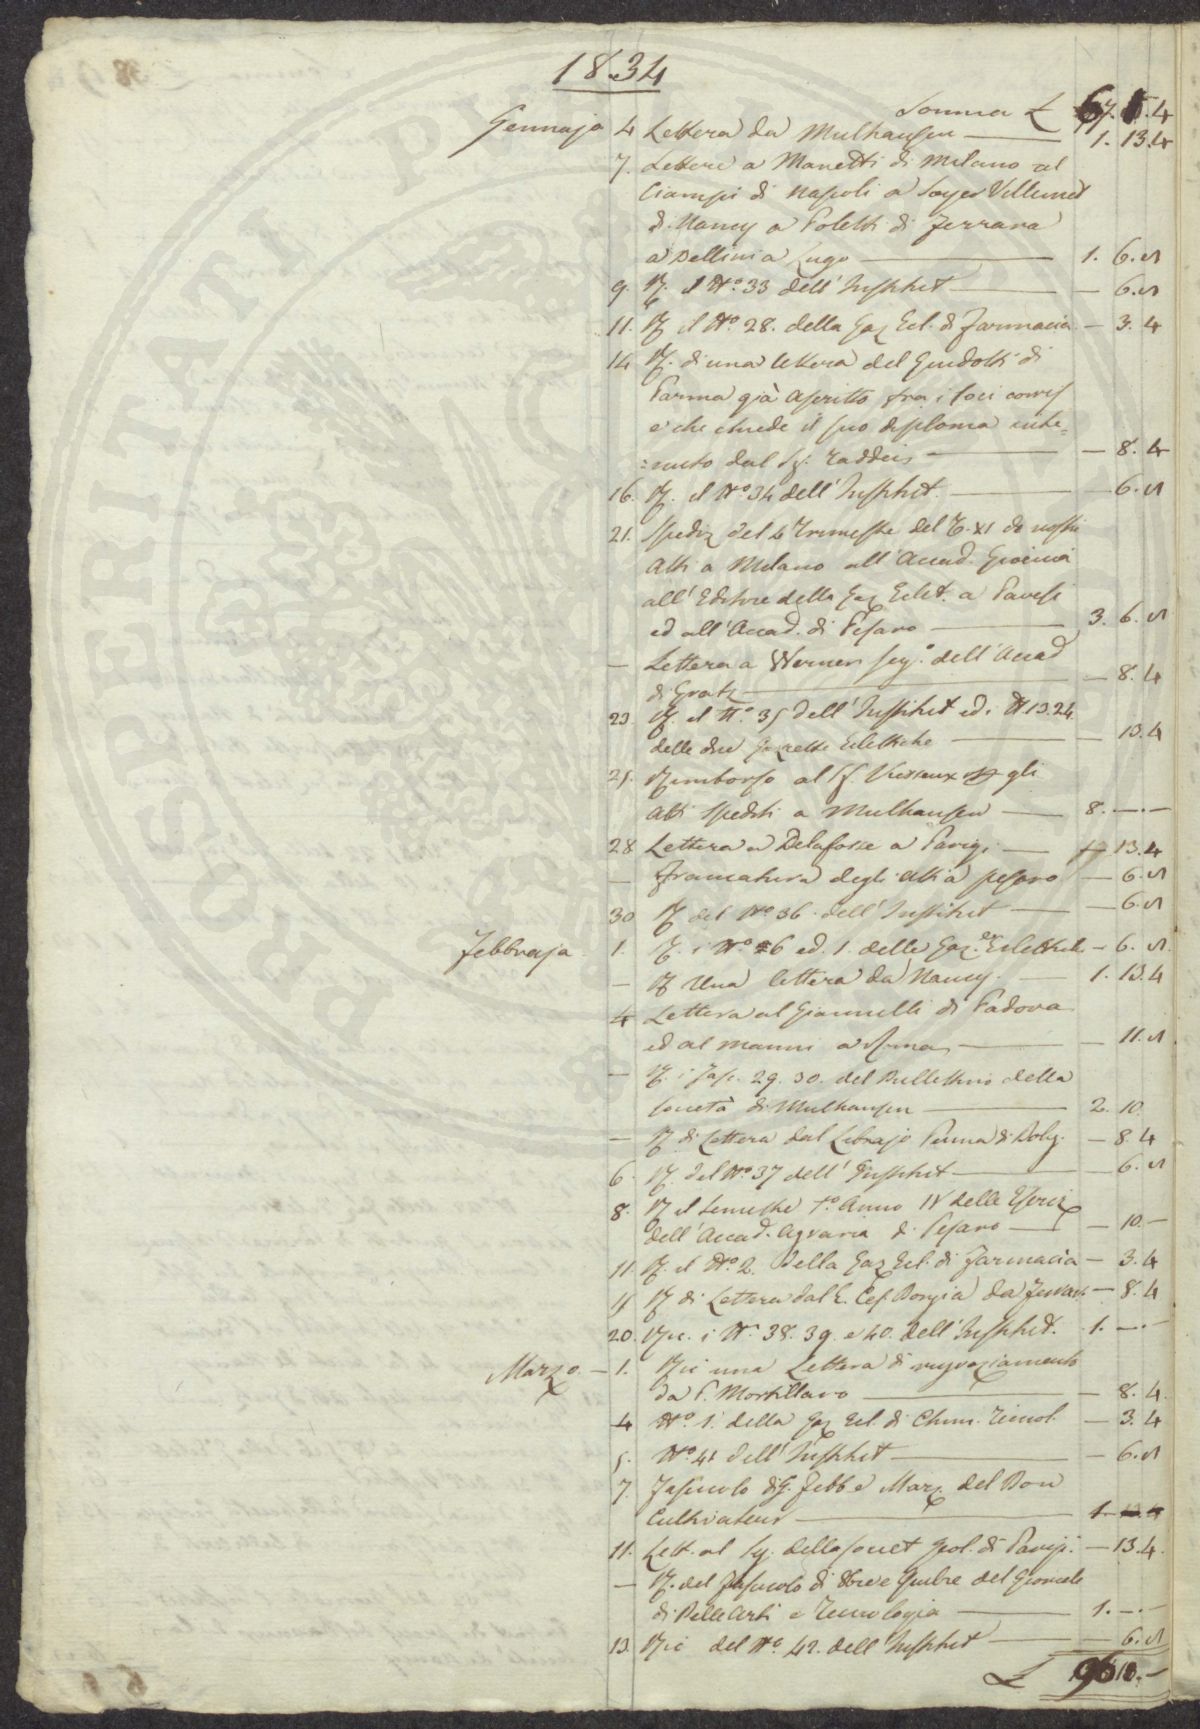 1834
Somma £ 67. 5. 4
Gennajo 4 Lettera da Mulhausen — 1. 13.4
7. Lettere a Manetti di Milano al
Ciampi di Napoli a Soyer Villemet
di Nancy a Poletti di Ferrara
a Dellini a Lugo — 1. 6. 8
9. R. il N.º 33 dell' Instituto — 6. 8
11. R. il N.º 28. della Gaz Ecl. di Farmacia — 3. 4
14 R. di una lettera del Guidotti di
Parma già ascritto fra i soci corris
e che chiede il suo diploma
dal Sig. Taddei — 8. 4
16. R. il N.º 34 dell' Instit. — 6. 8
21. Spediz del 4 Trimestre del T. XI de nostri
Atti a Milano all' Accad. Gioenia
all' Editore della Gaz Eclet. a Pavesi
ed all' Accad. di Pesaro — 3. 6. 8
— Lettera a Werner seg.º dell' Accad
di Gratz — 8. 4
23. R. il N.º 35 dell' Instit ed i N 13.24
delle due Gazzette Eclettiche — 13.4
25. Rimborso al Sig. Vieusseux gli
Atti spediti a Mulhausen — 8. — . —
28 Lettera a Delafosse a Parigi — 13.4
— Francatura degli Atti a Pesaro — 6. 8
30 R. del N.º 36. dell' Institut — 6. 8
Febbrajo 1. R. i N.º 6 ed. 1. delle Gaz.e Eclettiche — 6. 8
— R Una lettera da Nancy. — 1. 13.4
4 Lettera al Giannelli di Padova
ed al Manni a Roma — 11. 8
— R. i Fasc. 29. 30. del Bullettino della
Società di Mulhausen — 2. 10
— R. di Lettera dal Librajo Penna di Bolog. — 8 4
6. R. del N.º 37 dell' Institut — 6. 8
8. R il Semestre 1.º Anno IV delle Eserciz
dell' Accad. Agraria di Pesaro — 10. —
11 R. il N.º 2. della Gaz Ecl. di Farmacia — 3. 4
R di Lettera dal C. Borgia da — 8. 4
20. Ric. i N. 38. 39. e 40. dell' Institut. 1. — . —
Marzo — 1. Ric una Lettera di ringraziamento
da P. Mortillaro — 8. 4
4 N.º 1. della Gaz Ecl. di Chim. Tecnol. — 3. 4
5. N.º 41 dell' Institut — 6. 8
7. Fascicolo di G. Febb e Marz. del Bon
Cultivateur — 1.
11. Lett. al Sig. della Societ Geol. di Parigi. — 13. 4.
— R. del Fascicolo di 9bre e Xmbre del Giornale
di Belle Arti e Tecnologia — 1. — . —
13. Ric del N.º 42. dell' Institut — 6. 8
£ 96 10. —